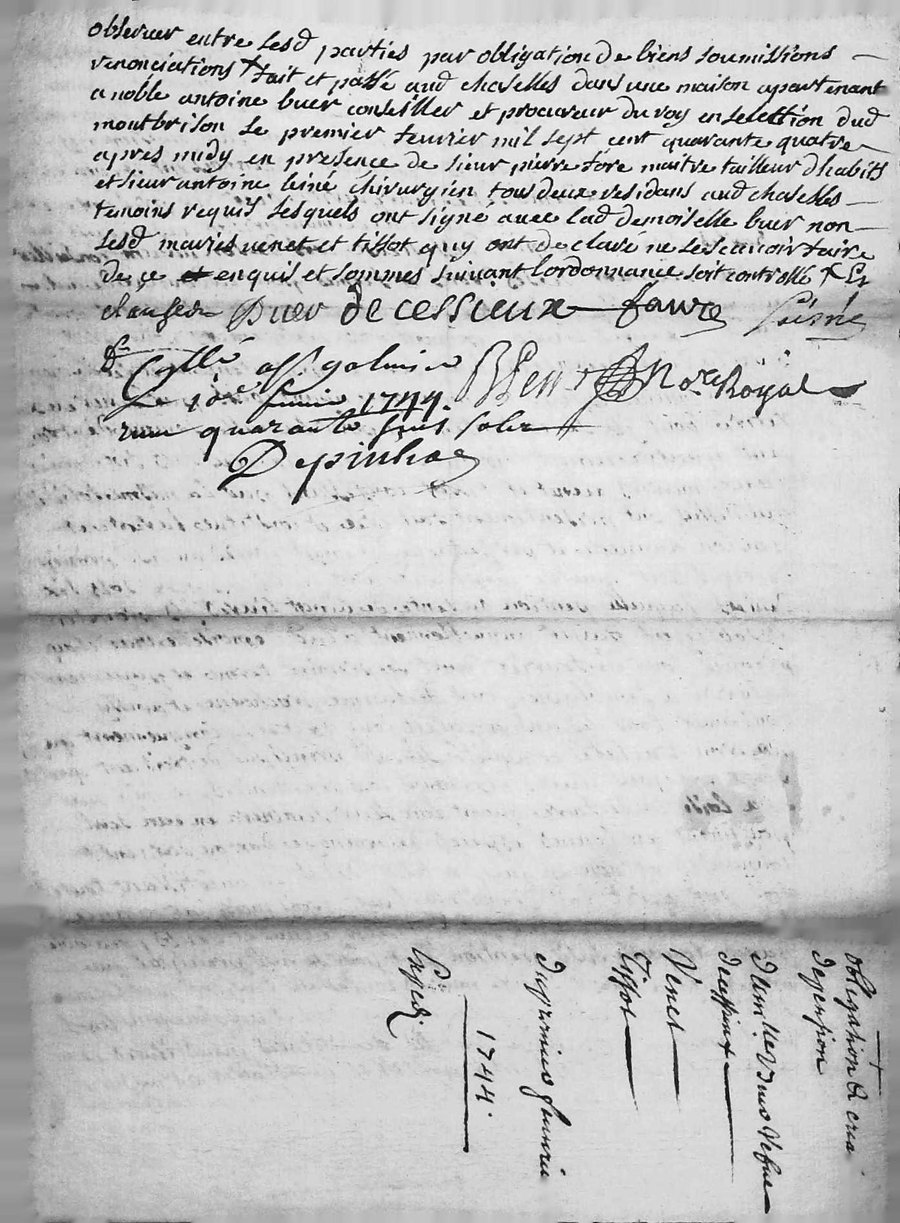 observer entre lesd parties par obligation de biens soumissions
renonciations + fait et passé aud chaselles dans une maison apartenant
a noble antoine buer conseiller et procureur du roy en selection dud
montbrison le premier feuvrier mil sept cent quarante quatre
apres midy en presence de sieur pierre fore maitre tailleur dhabits
et sieur antoine leiné chirurgien tous deux residans aud chaselles
temoins requis lesquels ont signé avec lad demoiselle buer non
lesd mariés venet et tissot quy ont declaré ne le scavoir faire
de ce enquis et sommés suivant lordonnance soit controllé + Et
clauses Buer de cessieux faure Leiné
Collé a st galmier
Le 10e feuvrier 1744. Not Royal
quarante huit sols
Depinhac
obligation &
de pension
Demlle Buer Vefve
decessieux
Venet
Tissot
du premier feuvrier
1744.
Exped